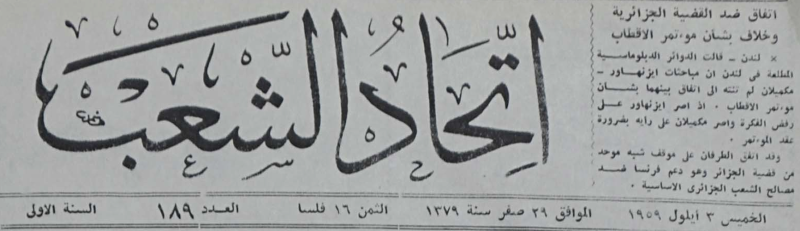 اتفاق ضد القضية الجزائرية
وخلاف بشأن موءتمر الاقطاب
× لندن ــ قالت الدوائر الدبلوماسية
المطلعة في لندن ان مباحثات ايزنهاور ــ
مكميلان لم تنته الى اتفاق بينهما بشان
موءتمر الاقطاب ٠ اذ اصر ايزنهاور على
رفض الفكرة واصر مكميلان على رايه بضرورة
عقد الموءتمر ٠
وقد اتفق الطرفان على موقف شبه موحد
من قضية الجزائر وهو دعم فرنسا ضد
مصالح الشعب الجزائرى الاساسية ٠
اتحاد الشعب
الخميس ٣ أيلول ١٩٥٩
الموافق ٢٩ صفر سنة ١٣٧٩
الثمن ١٦ فلسا
العدد ١٨٩
السنة الاولى